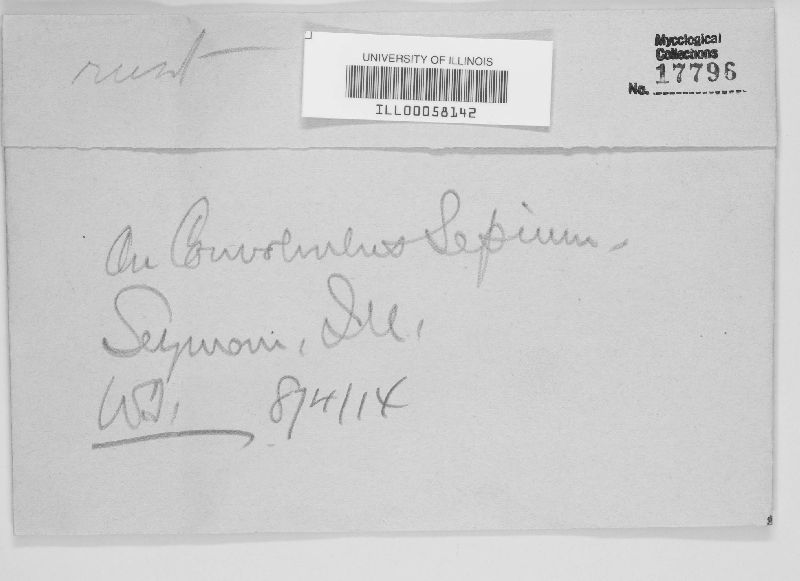 rust
UNIVERSITY OF ILLINOIS
ILL00058142
Mycological
Collections
No. 17796
On Convolvulus Sepium.
Seymour, Ill.
8/4/14